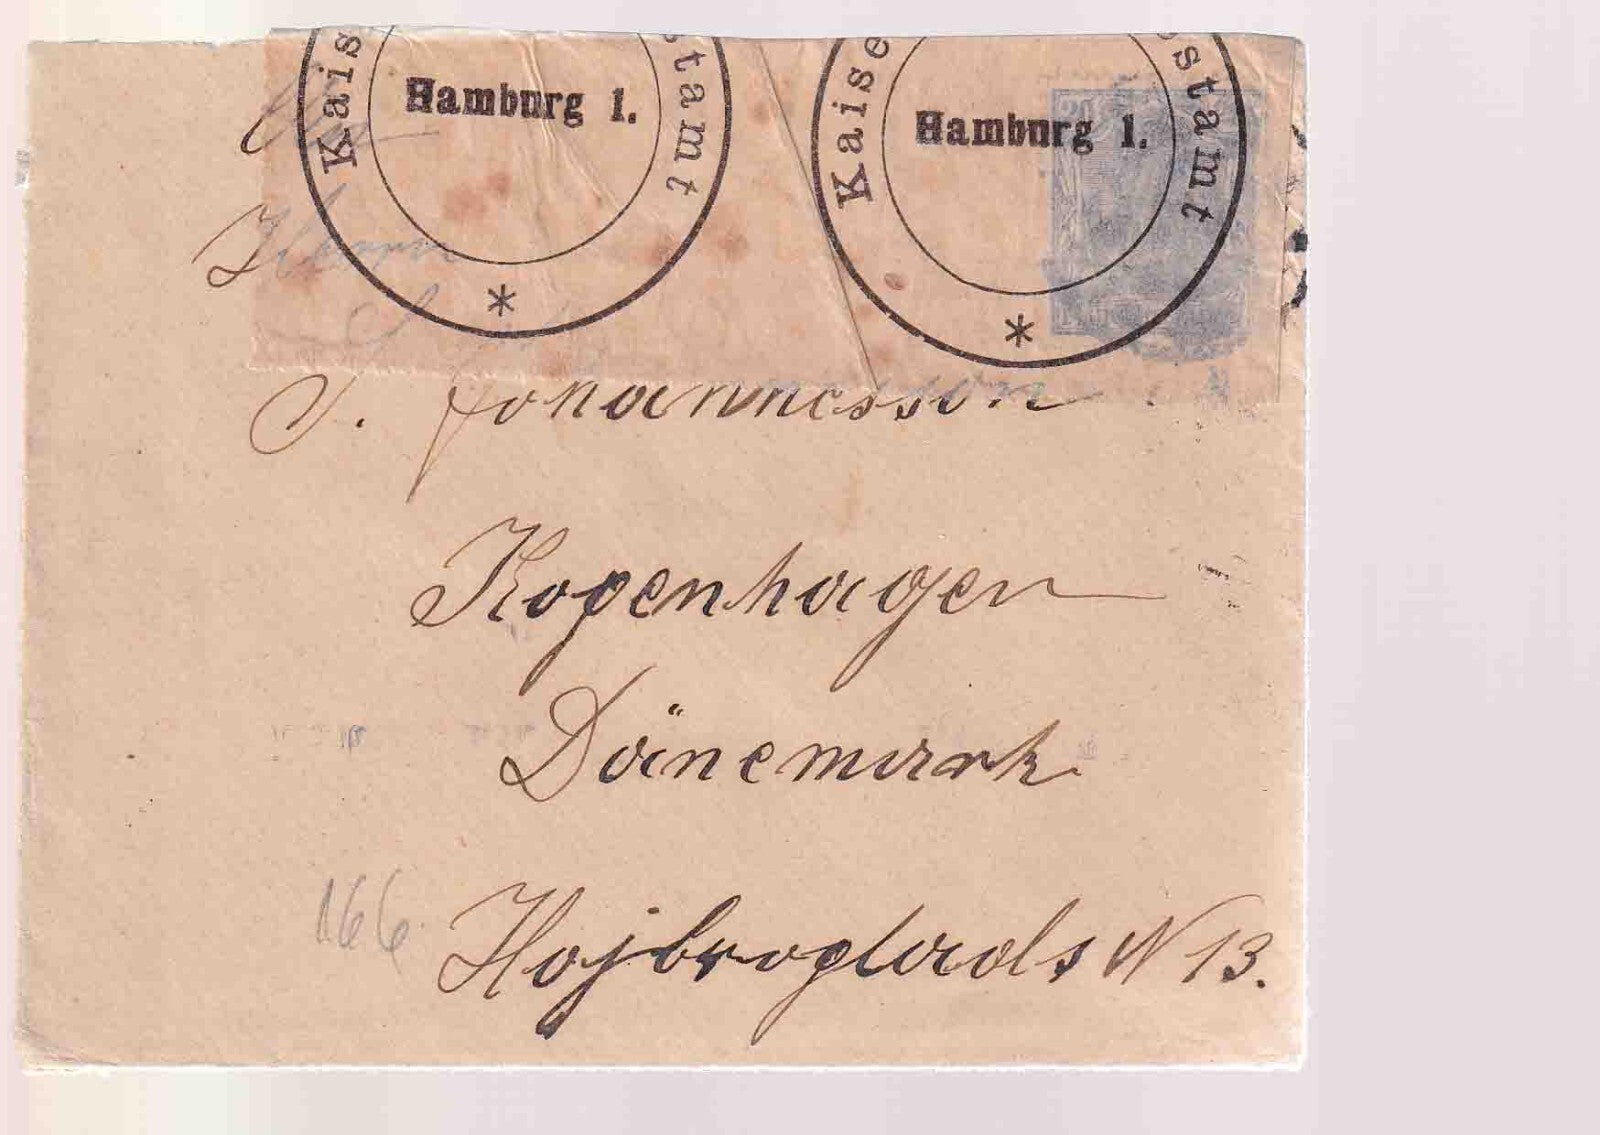 Kais stamt
Hamburg 1.
*
Kaise stamt
Hamburg 1.
*
20
Herrn
J. Johannesson
Kopenhagen
Dänemark
166
Hojbroplads N 13.